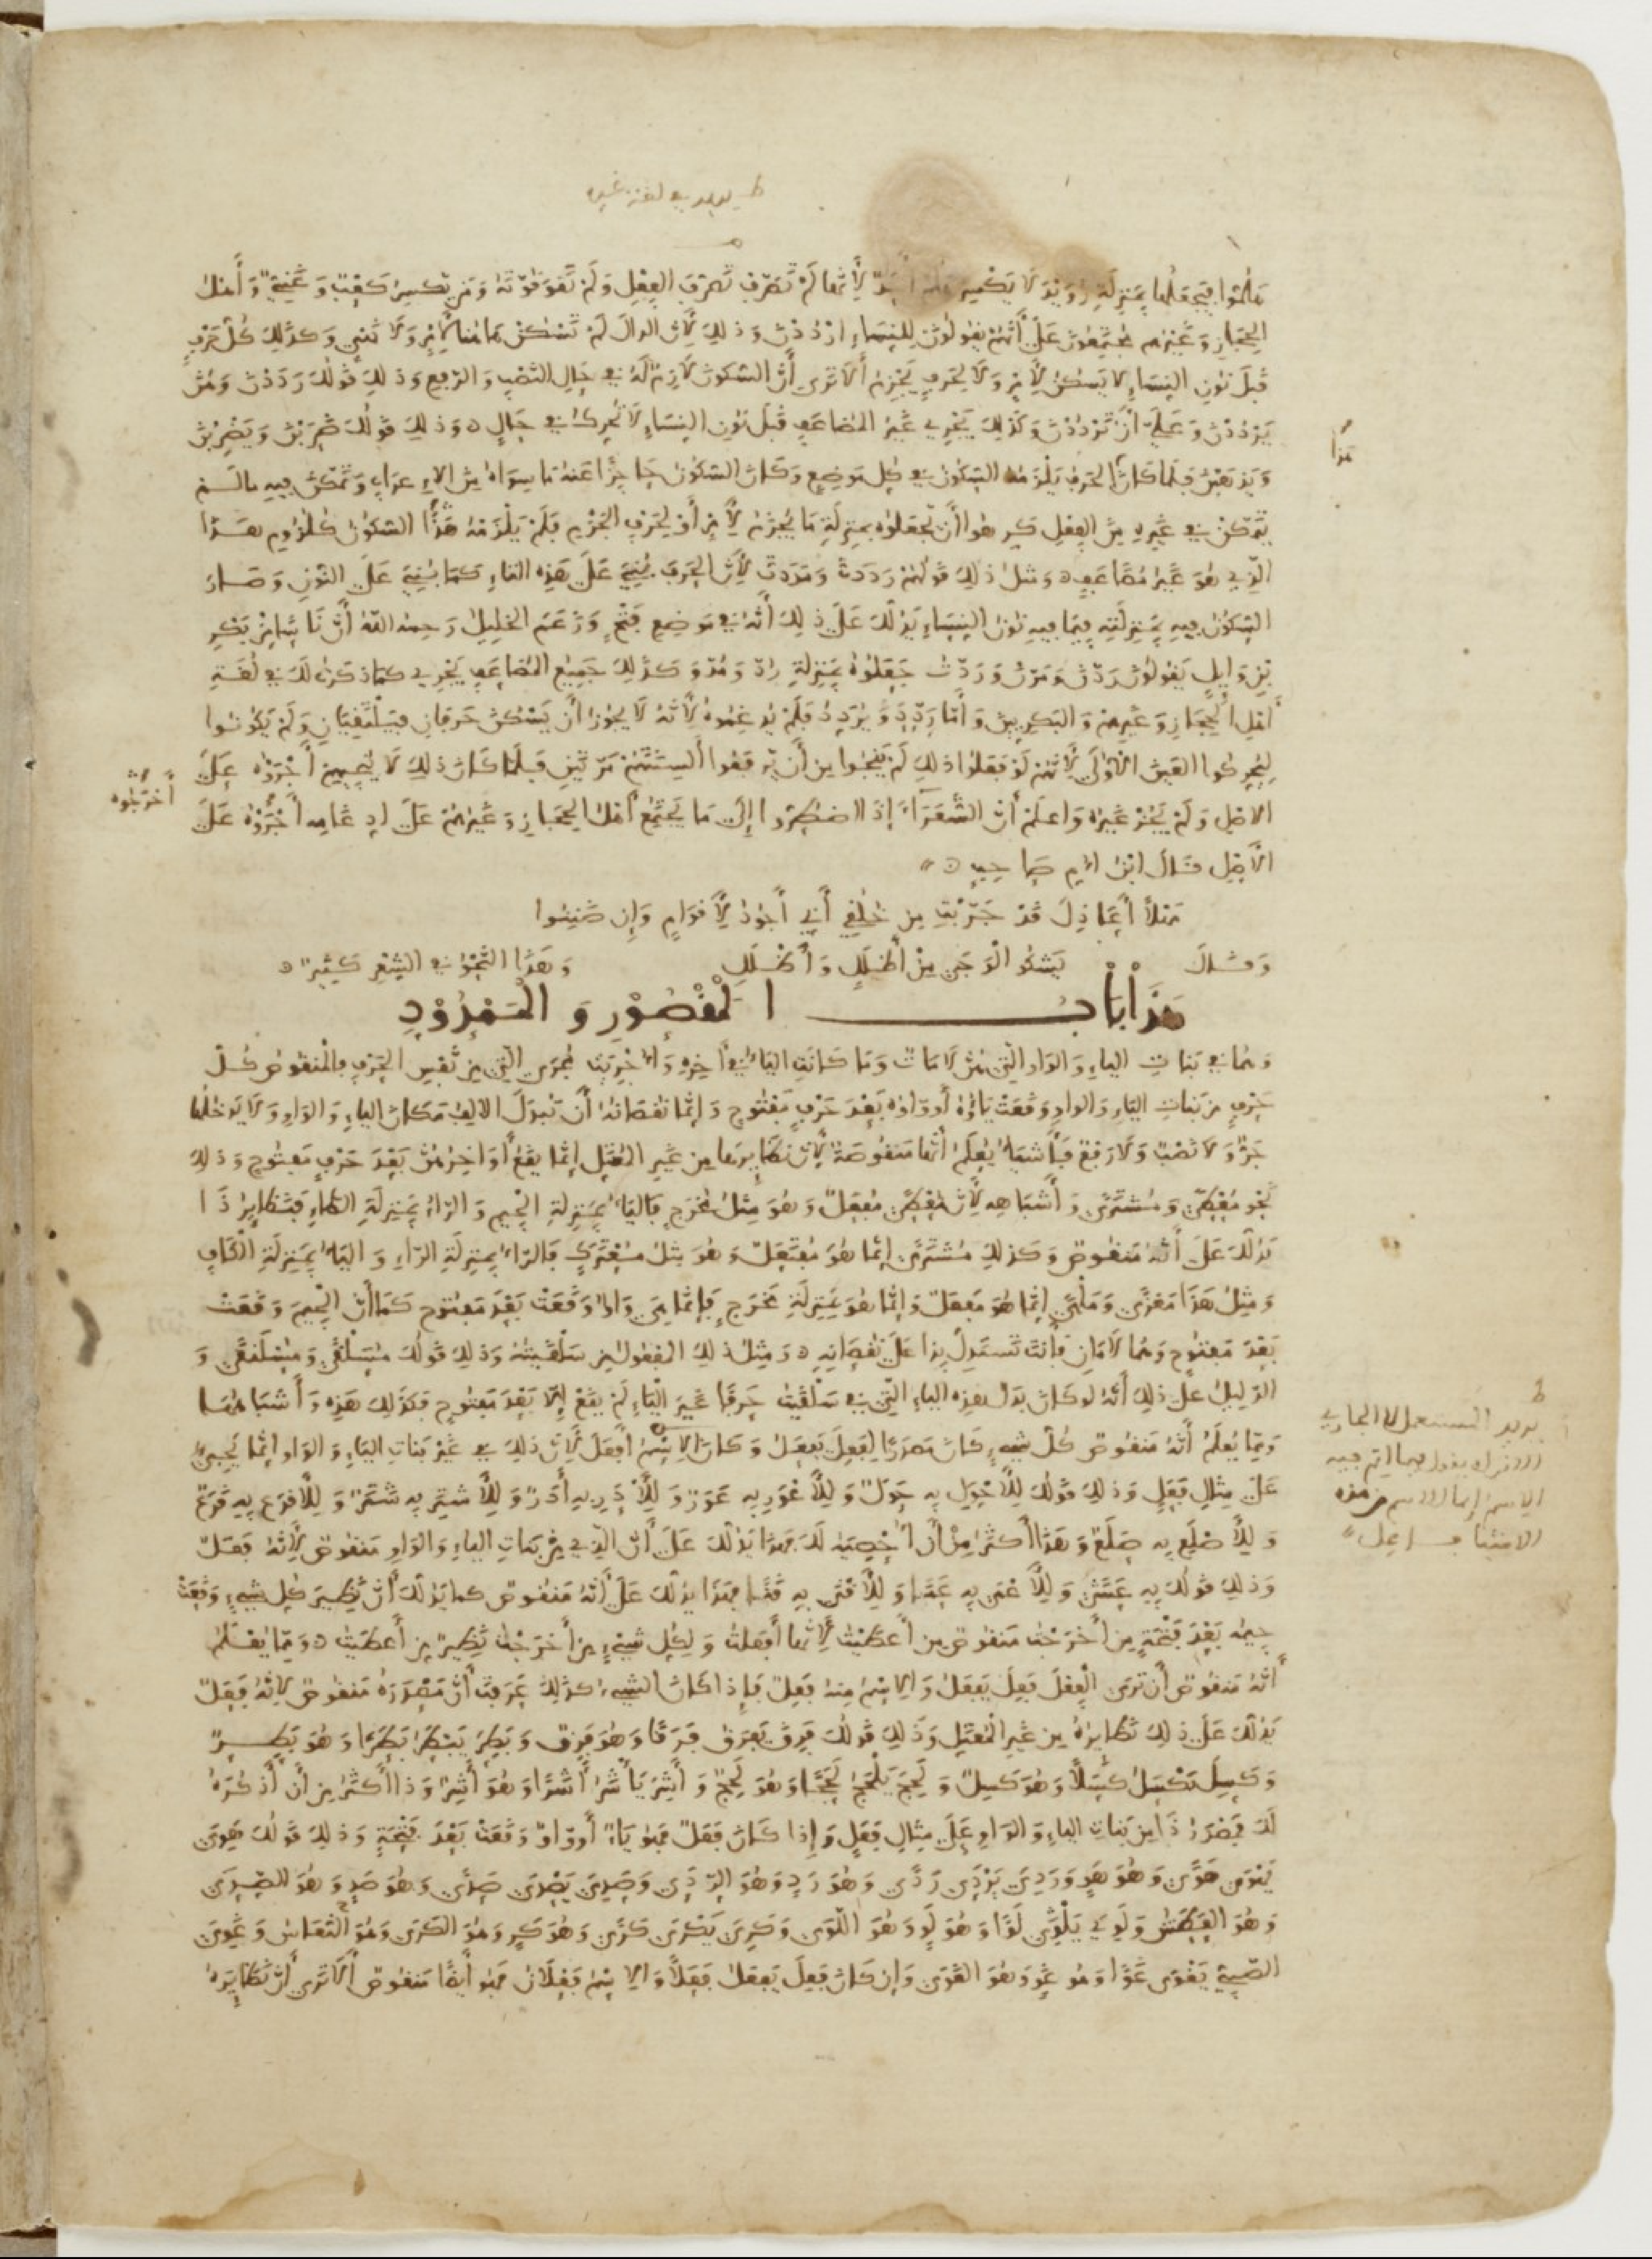 ط يريد في لغة غيره
هَلُمُّوا فيجعلها بمنزلة رُوَيْدَ لا يكسر هلم أحد لأنها لم تصرّف تصرّف الفعل ولم تقو قوته ومن يكسر كعب وغنيّ وأهل
الحجاز وغيرهم مجتمعون على أنهم يقولون للنساء ارددن وذلك لأن الدال لم تسكن هاهنا لأمر ولا نهي وكذلك كل حرف
قبل نون النساء لا يسكن لأمر ولا لحرف يجزم ألا ترى أن السكون لازم له في حال النصب والرفع وذلك قولك رددن وهن
يرددن وعليّ أن ترددن وكذلك يجري غير المضاعف قبل نون النساء لا يحرك في حال وذلك قولك ضربن ويضربن
ويذهبن فلما كان الحرف يلزمه السكون في كل موضع وكان السكون حاجزا عنه ما سواه من الإعراب وتمكن فيه ما لم
يتمكن في غيره من الفعل كرهوا أن يجعلوه بمنزلة ما يجزم لأمر أو لحرف الجزم فلم يلزمه هذا السكون كلزوم هذا
الذي هو غير مضاعف ومثل ذلك قولهم رددت ومددت لأن الحرف بني على هذه التاء كما بني على النون وصار
السكون فيه بمنزلته فيما فيه نون النساء يدلك على ذلك أنه في موضع فتح وزعم الخليل رحمه الله أن ناسا من بكر
بن وايل يقولون ردّن ومرّن وردّت جعلوه بمنزلة ردّ ومدّ وكذلك جميع المضاعف يجري كما ذكرت لك في لغة
أهل الحجاز وغيرهم والبكريين وأما ردّد ويردّد فلم يدغموه لأنه لا يجوز أن يسكن حرفان فيلتقيان ولم يكونوا
ليحركوا العين الأولى لأنهم لو فعلوا ذلك لم ينجوا من أن يرفعوا ألسنتهم مرتين فلما كان ذلك لا ينجيهم أجروه على
أخرجوه
الأصل ولم يجز غيره واعلم أن الشعراء إذا اضطروا إلى ما يجتمع أهل الحجاز وغيرهم على ادغامه أجروه على
الأصل قال ابن أم صاحب
مهلا أعاذل قد جربت من خلقي أني أجود لأقوام وإن ضننوا
وقال يشكو الوجى من أظلل وأظلل وهذا النحو في الشعر كثير
هذا باب المقصور والممدود
وهما في بنات الياء والواو التي هن لامات وما كانت الياء في آخره وأجريت مجرى التي من نفس الحرف فالمنقوص كل
حرف من بنات الياء والواو وقعت ياؤه أو واوه بعد حرف مفتوح وإنما نقصانه أن تبدل الألف مكان الياء والواو ولا يدخلها
جر ولا نصب ولا رفع فأشياء يعلم أنها منقوصة لأن نظايرها من غير المعتل إنما يقع أواخرهن بعد حرف مفتوح وذلك
نحو معطى ومشترى وأشباهه لأن معطى مفعل وهو مثل مخرج فالياء بمنزلة الجيم والراء بمنزلة الطاء فنظاير ذا
يدلك على أنه منقوص وكذلك مشترى إنما هو مفتعل وهو مثل معترك فالراء بمنزلة الراء والياء بمنزلة الكاف
ومثل هذا مغزى وملهى إنما هو مفعل وإنما هو بمنزلة مخرج فإنما هي واو وقعت بعد مفتوح كما أن الجيم وقعت
بعد مفتوح وهما لامان فأنت تستدل بذا على نقصانه ومثل ذلك المفعول من سلقيته وذلك قولك مسلقى ومسلنقى و
الدليل على ذلك أنه لو كان بدل هذه الياء التي في سلقيت حرفا غير الياء لم يقع إلا بعد مفتوح فكذلك هذه وأشباهها
ومما يعلم أنه منقوص كل شيء كان مصدرا لفعل يفعل وكان الاسم أفعل لأن ذلك في غير بنات الياء والواو إنما يجيء
على مثال فعل وذلك قولك للأحول به حول وللأعور به عور وللآدر به أدر وللأشتر به شتر وللأقرع به قرع
وللأصلع به صلع وهذا أكثر من أن أحصيه لك فهذا يدلك على أن الذي من بنات الياء والواو منقوص لأنه فعل
وذلك قولك به عشى وللأعمى به عمى وللأقنى به قنى فهذا يدلك على أنه منقوص كما يدلك أن نظير كل شيء وقعت
جيمه بعد فتحة من أخرجت منقوص من أعطيت لأنها أفعلت ولكل شيء من أخرجت نظير من أعطيت ومما يعلم
أنه منقوص أن ترى الفعل فعل يفعل والاسم منه فعل فإذا كان الشيء كذلك عرفت أن مصدره منقوص لأنه فعل
يدلك على ذلك نظايره من غير المعتل وذلك قولك فرق يفرق فرقا وهو فرق وبطر يبطر بطرا وهو بطر
وكسل يكسل كسلا وهو كسل ولحج يلحج لحجا وهو لحج وأشر يأشر أشرا وهو أشر وذا أكثر من أن أذكره
لك فمصدر ذا من بنات الياء والواو على مثال فعل وإذا كان فعل فهو ياء أو واو وقعت بعد فتحة وذلك قولك هوي
يهوى هوى وهو هو وردي يردى ردى وهو رد وهو الردى وصدي يصدى صدى وهو صد وهو الصدى
وهو العطش ولوي يلوى لوى وهو لو وهو اللوى وكري يكرى كرى وهو كر وهو الكرى وهو النعاس وغوي
الصبي يغوى غوى وهو غو وهو الغوى وإن كان فعل يفعل فعلا والاسم فعلان فهو أيضا منقوص ألا ترى أن نظايره
هذا
ط
يريد المستعمل